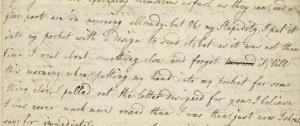 themselves as fast, as they can, and a
parts are in mourning allready, but Oh! my Stupidity, I put it
into my pocket with a Design to send it, but as it was not then
time I went about something else, and forgot it, till
this morning, when putting my hand into my pocket for some
thing else, I pulled out the letter designed for you, I believe
I was never much more vexed than I was then, just now I